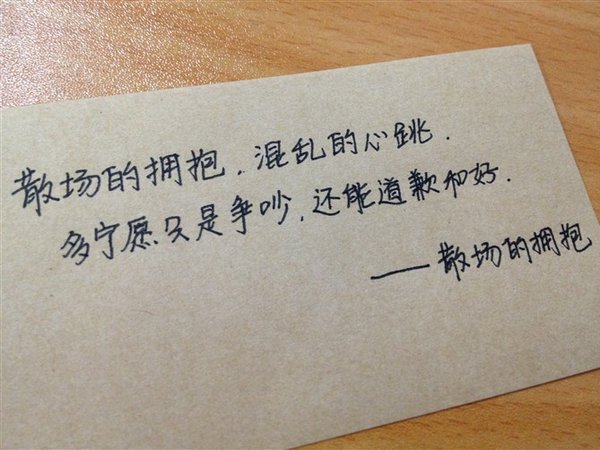 散场的拥抱，混乱的心跳．
多宁愿只是争吵，还能道歉和好．
——散场的拥抱